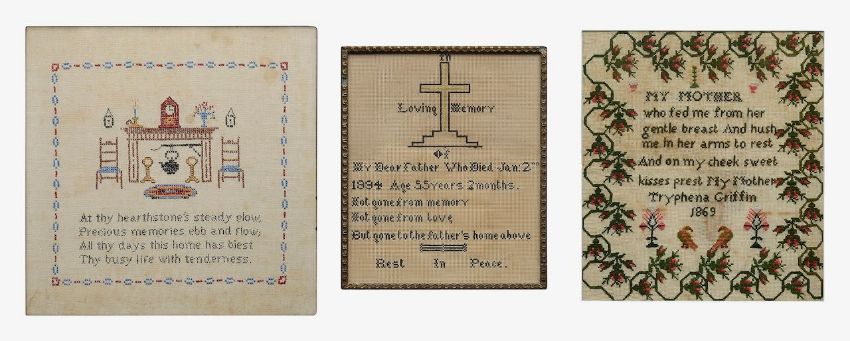 At thy hearthstone's steady glow,
Precious memories ebb and flow;
All thy days this home has blest
Thy busy life with tenderness.
In
Loving Memory
Of
My Dear Father Who Died Jan: 2nd
1894 Age 55 years 2 months.
Not gone from memory
Not gone from love
But gone to the father's home above
Rest In Peace.
MY MOTHER
who fed me from her
gentle breast And hush
me in her arms to rest
And on my cheek sweet
kisses prest My Mother
Tryphena Griffin
1869